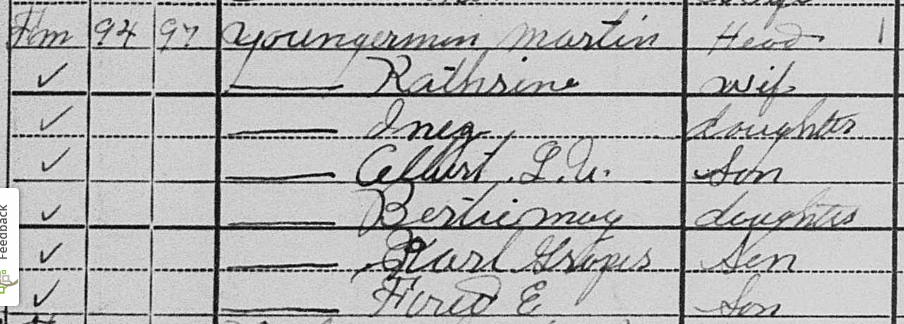 Fm 94 97 Youngermen Martin Head 1
Kathrine wif
Ineg daughter
Albert L.W. Son
Bertie may daughter
Karl Son
Fired E Son
Feedback